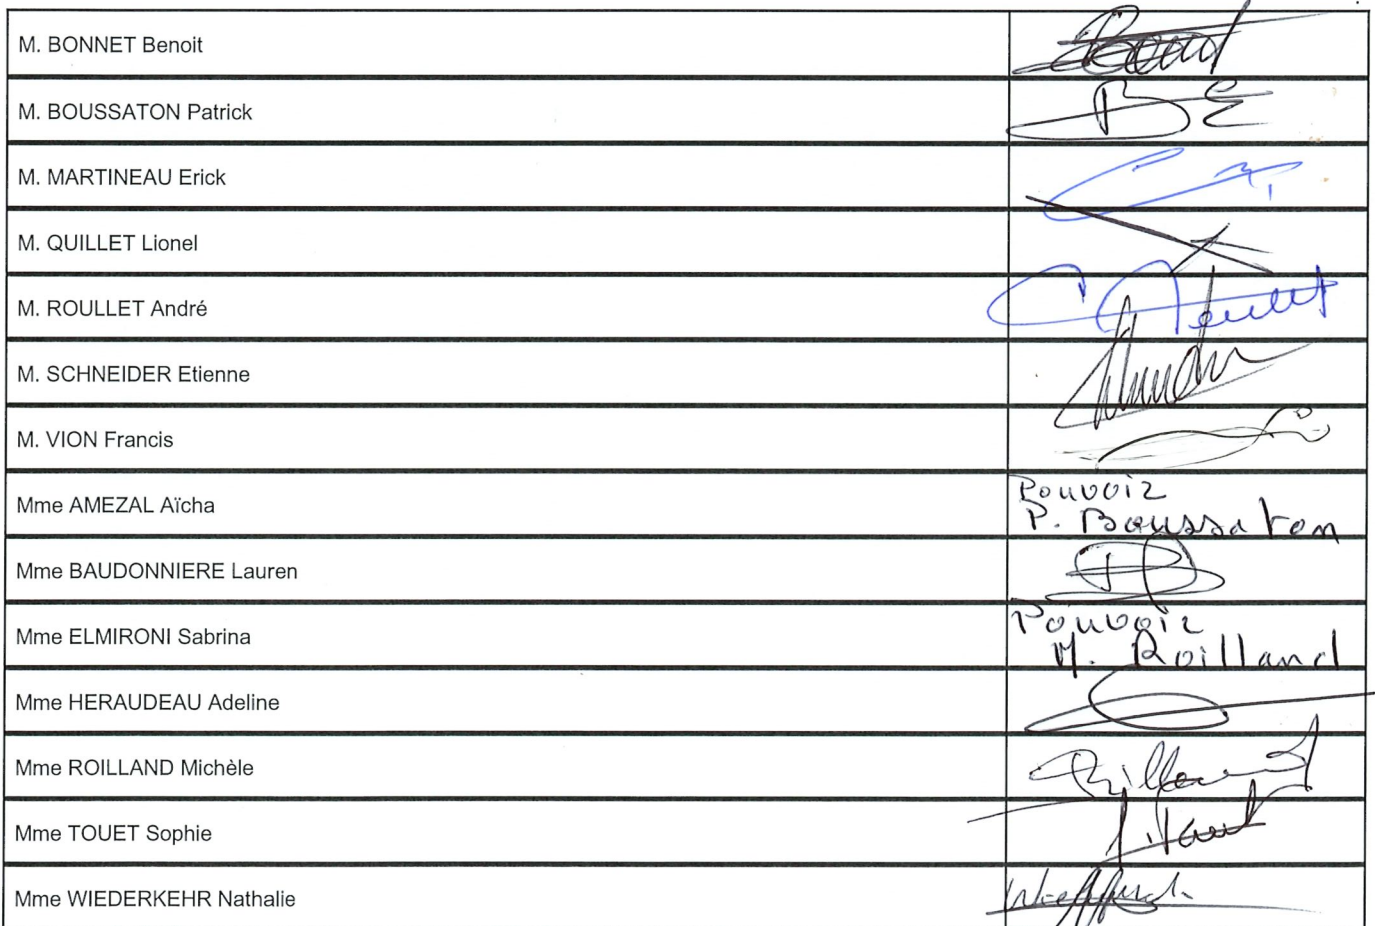 M. BONNET Benoit
M. BOUSSATON Patrick
M. MARTINEAU Erick
M. QUILLET Lionel
M. ROULLET André
M. SCHNEIDER Etienne
M. VION Francis
Mme AMEZAL Aïcha
Pouvoir
P. Boussaton
Mme BAUDONNIERE Lauren
Mme ELMIRONI Sabrina
Pouvoir
M. Roilland
Mme HERAUDEAU Adeline
Mme ROILLAND Michèle
Mme TOUET Sophie
Mme WIEDERKEHR Nathalie